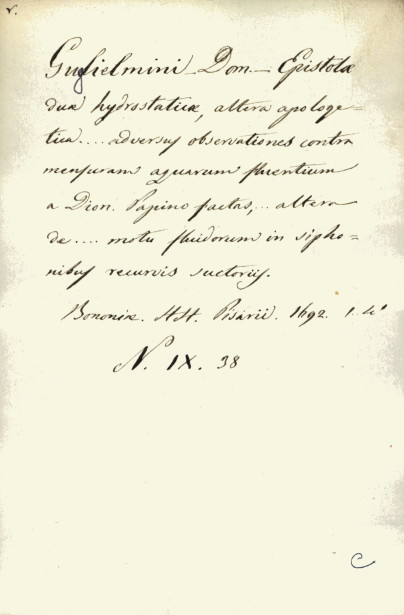 v.
Guglielmini Dom. Epistolæ
duæ hydrostaticæ, altera apologe=
tica.... adversus observationes contra
mensuram aquarum fluentium
a Dion. Papino factas,.. altera
de.... motu fluidorum in sipho=
nibus recurvis suctoriis.
Bononiæ. HH. Pisarii. 1692. 1. 4°
N. IX. 38
C